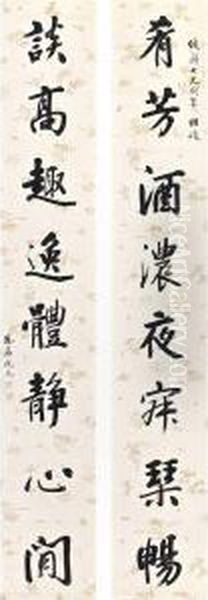 肴芳酒濃夜寐琹暢
談高趣逸體靜心閒